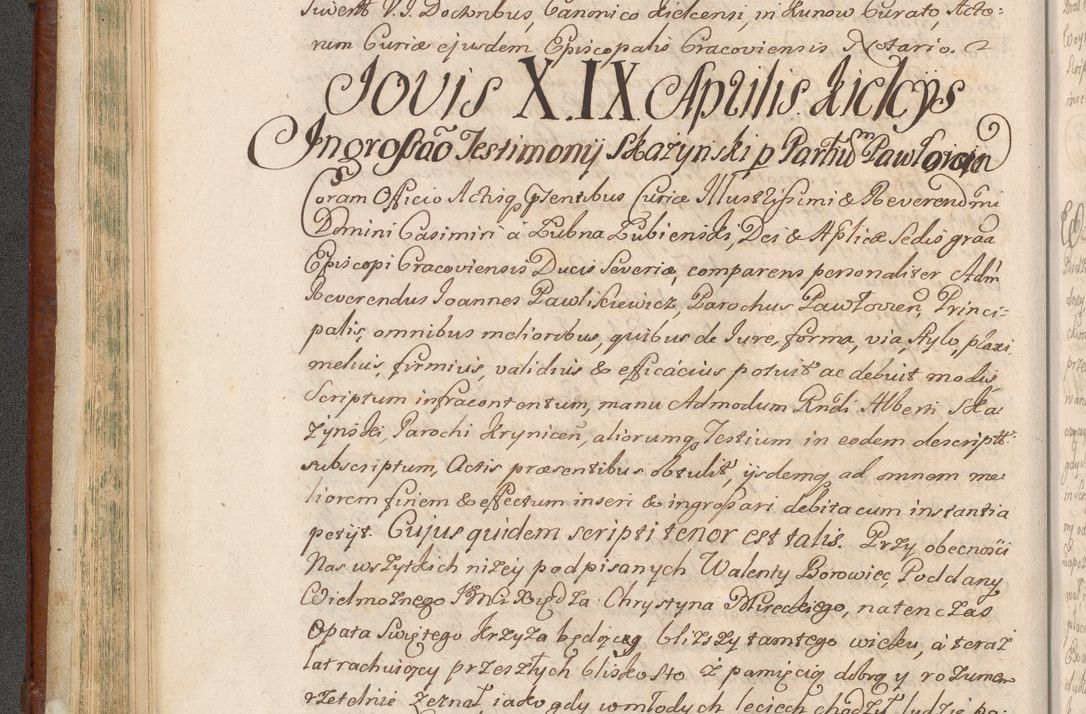 Juventt V. J. Doctoribus, Canonico Kielcensi, in Kunow Curato, Acto-
rum Curiæ ejusdem Episcopalis Cracoviensis Notario.
Jovis X.IX. Aprilis. Kielcijs
Ingrossaõ Testimonij Skażynski p Parthũ Pawłovien
Coram Officio Actisq pntentibus Curiæ Illustrissimi & Reverendmi
Domini Casimiri à Łubna Łubienski, Dei & Aplicæ Sedis graa
Episcopi Cracoviensis Ducis Severiæ, comparens personaliter Adm
Reverendus Joannes Pawliskiewicz, Parochus Pawłovien, Princi-
palis, omnibus melioribus, quibus de Jure, forma, via, stylo, praxi,
melius, firmius, validius & efficácius potuit ac debuit modis,
Scriptum infracontentum, manu Admodum Rndi Alberti Ska
żyński, Parochi Krynicen, aliorumq Testium in eodem descriptt
subscriptum, Actis præsentibus obtulit, ijsdemq ad omnem me
liorem finem & effectum inseri & ingrossari debita cum instantia
petijt. Cujus quidem scripti tenor est talis. Przy obecności
Nas wszytkich niżey podpisanych Walenty Borowiec, Poddany
Wielmożnego Jmci Xiędza Chrystyna Mireckiego, natenczas
Opata Swiętego Krzyża będącey bliższy tamtego wieku, à teraż
lat rachuiący przeszłych blisko sto ż pamięcią dobrą y rozumem
rżetelnie żeżnał, iako gdy w młodych leciech chodził ludzie po-